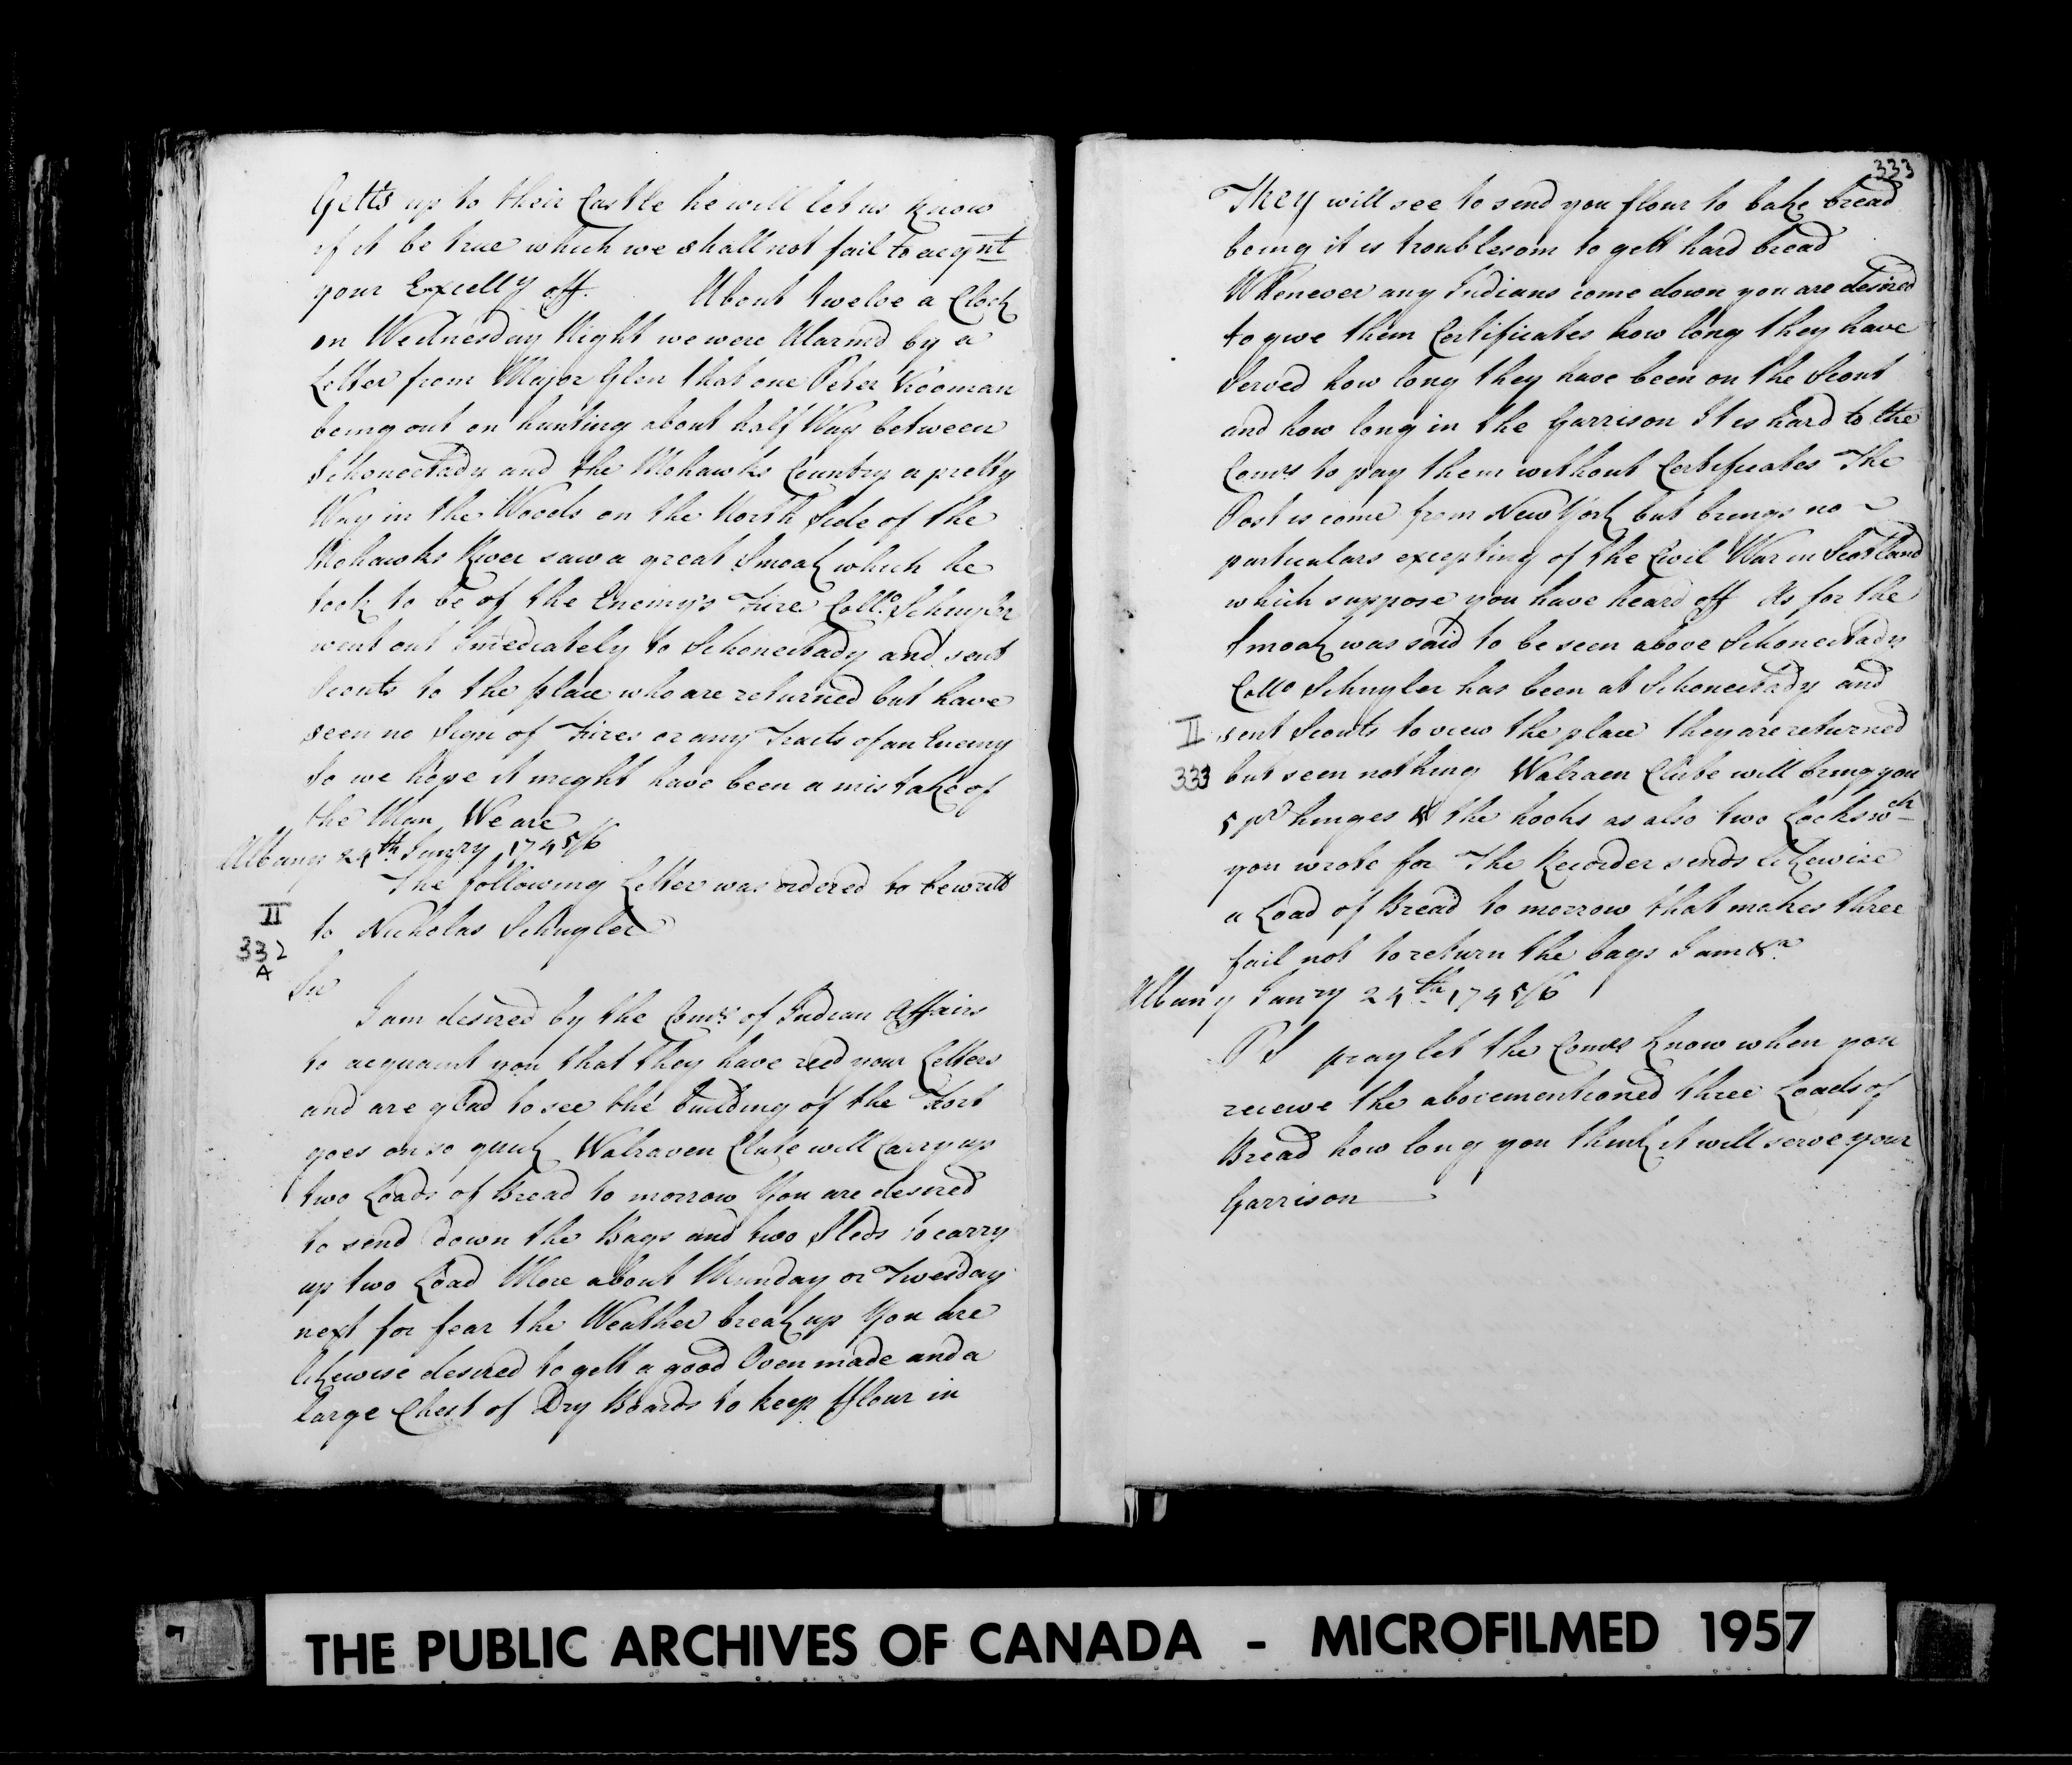 Getts up to their Castle he will let us know
if it be true which we shall not fail to acqnt
your Excelly off. About twelve a Clock
on Wednesday Night we were Alarmd by a
Letter from Major Glen that one Peter Vrooman
being out on hunting about half Way between
Schonectady and the Mohawks Country a pretty
Way in the Woods on the North Side of the
Mohawks River saw a great Smoak which he
took to be of the Enemy's Fire Collo. Schuyler
went out Imediately to Schonectady and sent
Scouts to the place who are returned but have
seen no Sign of Fires or any Tracts of an Enemy
So we hope it might have been a mistake of
the Man We are
Albany 24th Janry 1745/6
The following Letter was ordered to be writt
II
to Nicholas Schuyler
332
A
Sir
I am desired by the Comrs of Indian Affairs
to acquaint you that they have recd your Letters
and are glad to see the building of the Fort
goes on so quick Walraven Clute will Carry up
two Loads of Bread to morrow You are desired
to send down the Bags and two Sleds to carry
up two Load More about Munday or Twesday
next for fear the Weather break up You are
likewise desired to gett a good Oven made and a
large Chest of Dry Boards to keep fflour in
333
They will see to send you flour to bake bread
being it is troublesom to gett hard bread
Whenever any Indians come down you are desired
to give them Certificates how long they have
Served how long they have been on the Scout
and how long in the Garrison It is hard to the
Comrs to pay them without Certificates The
Post is come from New York but brings no
particulars excepting of the Civil War in Scotland
which suppose you have heard off As for the
Smoak was said to be seen above Schonectady
Collo Schuyler has been at Schonectady and
II sent Scouts to view the place they are returned
333 but seen nothing Walraen Clute will bring you
5 pr hinges & the hooks as also two Locks wch
you wrote for The Recorder sends likewise
a Load of Bread to morrow that makes three
fail not to return the bags I am &a.
Albany Janry 24th 1745/6
PS pray let the Comrs know when you
receive the abovementioned three Loads of
Bread how long you think it will serve your
Garrison
7
THE PUBLIC ARCHIVES OF CANADA - MICROFILMED 1957